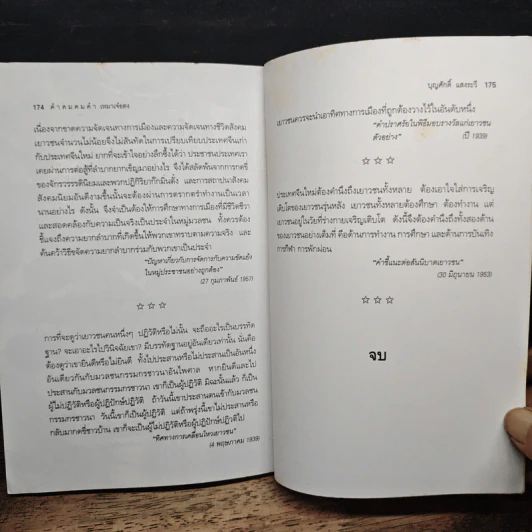 174 คำคมคมคำ เหมาเจ๋อตง
เนื่องจากขาดความจัดเจนทางการเมืองและความจัดเจนทางชีวิตสังคม
เยาวชนจำนวนไม่น้อยจึงไม่สันทัดในการเปรียบเทียบประเทศจีนเก่า
กับประเทศจีนใหม่ ยากที่จะเข้าใจอย่างลึกซึ้งได้ว่า ประชาชนประเทศเรา
เคยผ่านการต่อสู้ที่ลำบากยากเข็ญมาอย่างไร จึงได้สลัดพ้นจากการกดขี่
ของจักรวรรดินิยมและพวกปฏิกิริยาก๊กมินตั๋ง และการสถาปนาสังคม
สังคมนิยมอันดีงามขึ้นนั้นจะต้องผ่านการตรากตรำทำงานเป็นเวลา
นานอย่างไร ดังนั้น จึงจำเป็นต้องให้การศึกษาทางการเมืองที่มีชีวิตชีวา
และสอดคล้องกับความเป็นจริงเป็นประจำในหมู่มวลชน ทั้งควรต้อง
ชี้แจงถึงความยากลำบากที่เกิดขึ้นให้พวกเขาทราบตามความจริง และ
ค้นคว้าวิธีขจัดความยากลำบากร่วมกับพวกเขาเป็นประจำ
"ปัญหาเกี่ยวกับการจัดการกับความขัดแย้ง
ในหมู่ประชาชนอย่างถูกต้อง"
(27 กุมภาพันธ์ 1957)
☆ ☆ ☆
การที่จะดูว่าเยาวชนคนหนึ่งๆ ปฏิวัติหรือไม่นั้น จะถืออะไรเป็นบรรทัด
ฐาน? จะเอาอะไรไปวินิจฉัยเขา? มีบรรทัดฐานอยู่อันเดียวเท่านั้น นั่นคือ
ต้องดูว่าเขายินดีหรือไม่ยินดี ทั้งไปประสานหรือไม่ประสานเป็นอันหนึ่ง
อันเดียวกันกับมวลชนกรรมกรชาวนาอันไพศาล หากยินดีและไป
ประสานกับมวลชนกรรมกรชาวนา เขาก็เป็นผู้ปฏิวัติ มิฉะนั้นแล้ว ก็เป็น
ผู้ไม่ปฏิวัติหรือผู้ปฏิปักษ์ปฏิวัติ ถ้าวันนี้เขาประสานตนเข้ากับมวลชน
กรรมกรชาวนา วันนี้เขาก็เป็นผู้ปฏิวัติ แต่ถ้าพรุ่งนี้เขาไม่ประสานหรือ
กลับมากดขี่ชาวบ้าน เขาก็จะเป็นผู้ไม่ปฏิวัติหรือผู้ปฏิปักษ์ปฏิวัติไป
"ทิศทางการเคลื่อนไหวเยาวชน"
(4 พฤษภาคม 1939)
บุญศักดิ์ แสงระวี 175
เยาวชนควรจะนำเอาทิศทางการเมืองที่ถูกต้องวางไว้ในอันดับหนึ่ง
"คำปราศรัยในพิธีมอบรางวัลแก่เยาวชน
ตัวอย่าง" (ปี 1939)
☆ ☆ ☆
ประเทศจีนใหม่ต้องคำนึงถึงเยาวชนทั้งหลาย ต้องเอาใจใส่การเจริญ
เติบโตของเยาวชนรุ่นหลัง เยาวชนทั้งหลายต้องศึกษา ต้องทำงาน แต่
เยาวชนอยู่ในวัยที่ร่างกายเจริญเติบโต ดังนี้จึงต้องคำนึงถึงทั้งสองด้าน
ของเยาวชนอย่างเต็มที่ คือด้านการทำงาน การศึกษา และด้านการบันเทิง
การกีฬา การพักผ่อน
"คำชี้แนะต่อสันนิบาตเยาวชน"
(30 มิถุนายน 1953)
☆ ☆ ☆
จบ